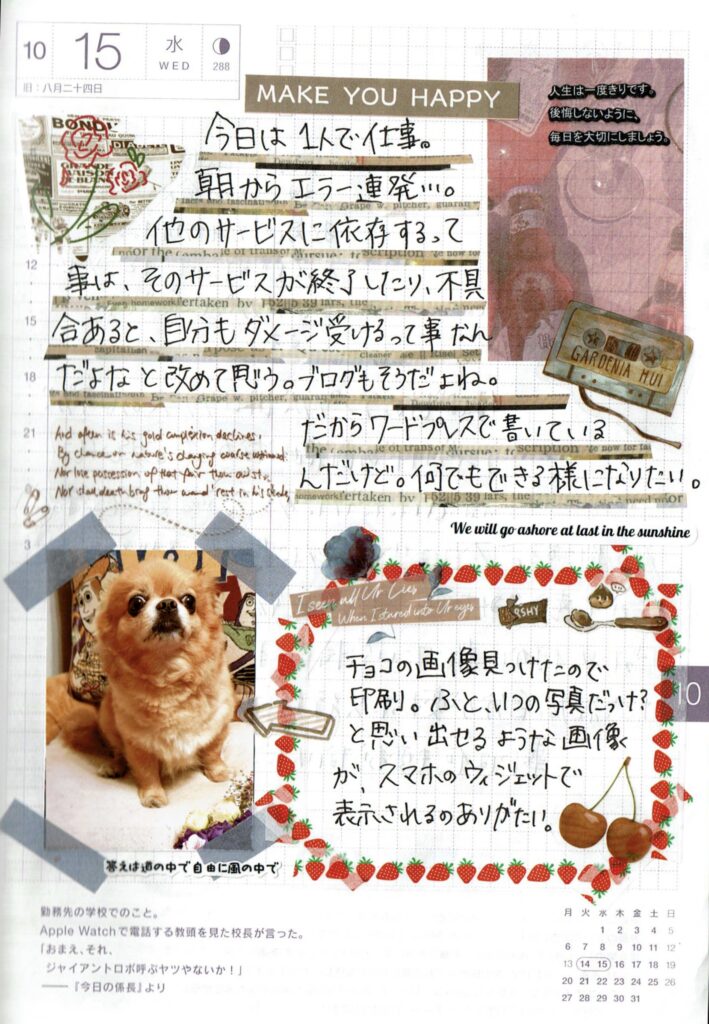 10 15 水 WED 288
旧：八月二十四日
MAKE YOU HAPPY
人生は一度きりです。
後悔しないように、
毎日を大切にしましょう。
今日は1人で仕事。
朝からエラー連発…。
他のサービスに依存するって
事は、そのサービスが終了したり、不具
合あると、自分もダメージ受けるって事なん
だよなと改めて思う。ブログもそうだよね。
だからワードプレスで書いている
んだけど。何でもできる様になりたい。
GARDENIA HUI
12
15
18
21
3
And often is his gold complexion
By chance or nature's changing course
Nor lose possession of that fair thou
Nor shall death brag thou rest in his shade
We will go ashore at last in the sunshine
I seen all Ur Lies
When I stared into Ur eyes
チョコの画像見つけたので
印刷。ふと、いつの写真だっけ?
と思い出せるような画像
が、スマホのウィジェットで
表示されるのありがたい。
10
答えは道の中で自由に風の中で
勤務先の学校でのこと。
Apple Watchで電話する教頭を見た校長が言った。
「おまえ、それ、
ジャイアントロボ呼ぶヤツやないか！」
——『今日の係長』より
月 火 水 木 金 土 日
1 2 3 4 5
6 7 8 9 10 11 12
13 14 15 16 17 18 19
20 21 22 23 24 25 26
27 28 29 30 31